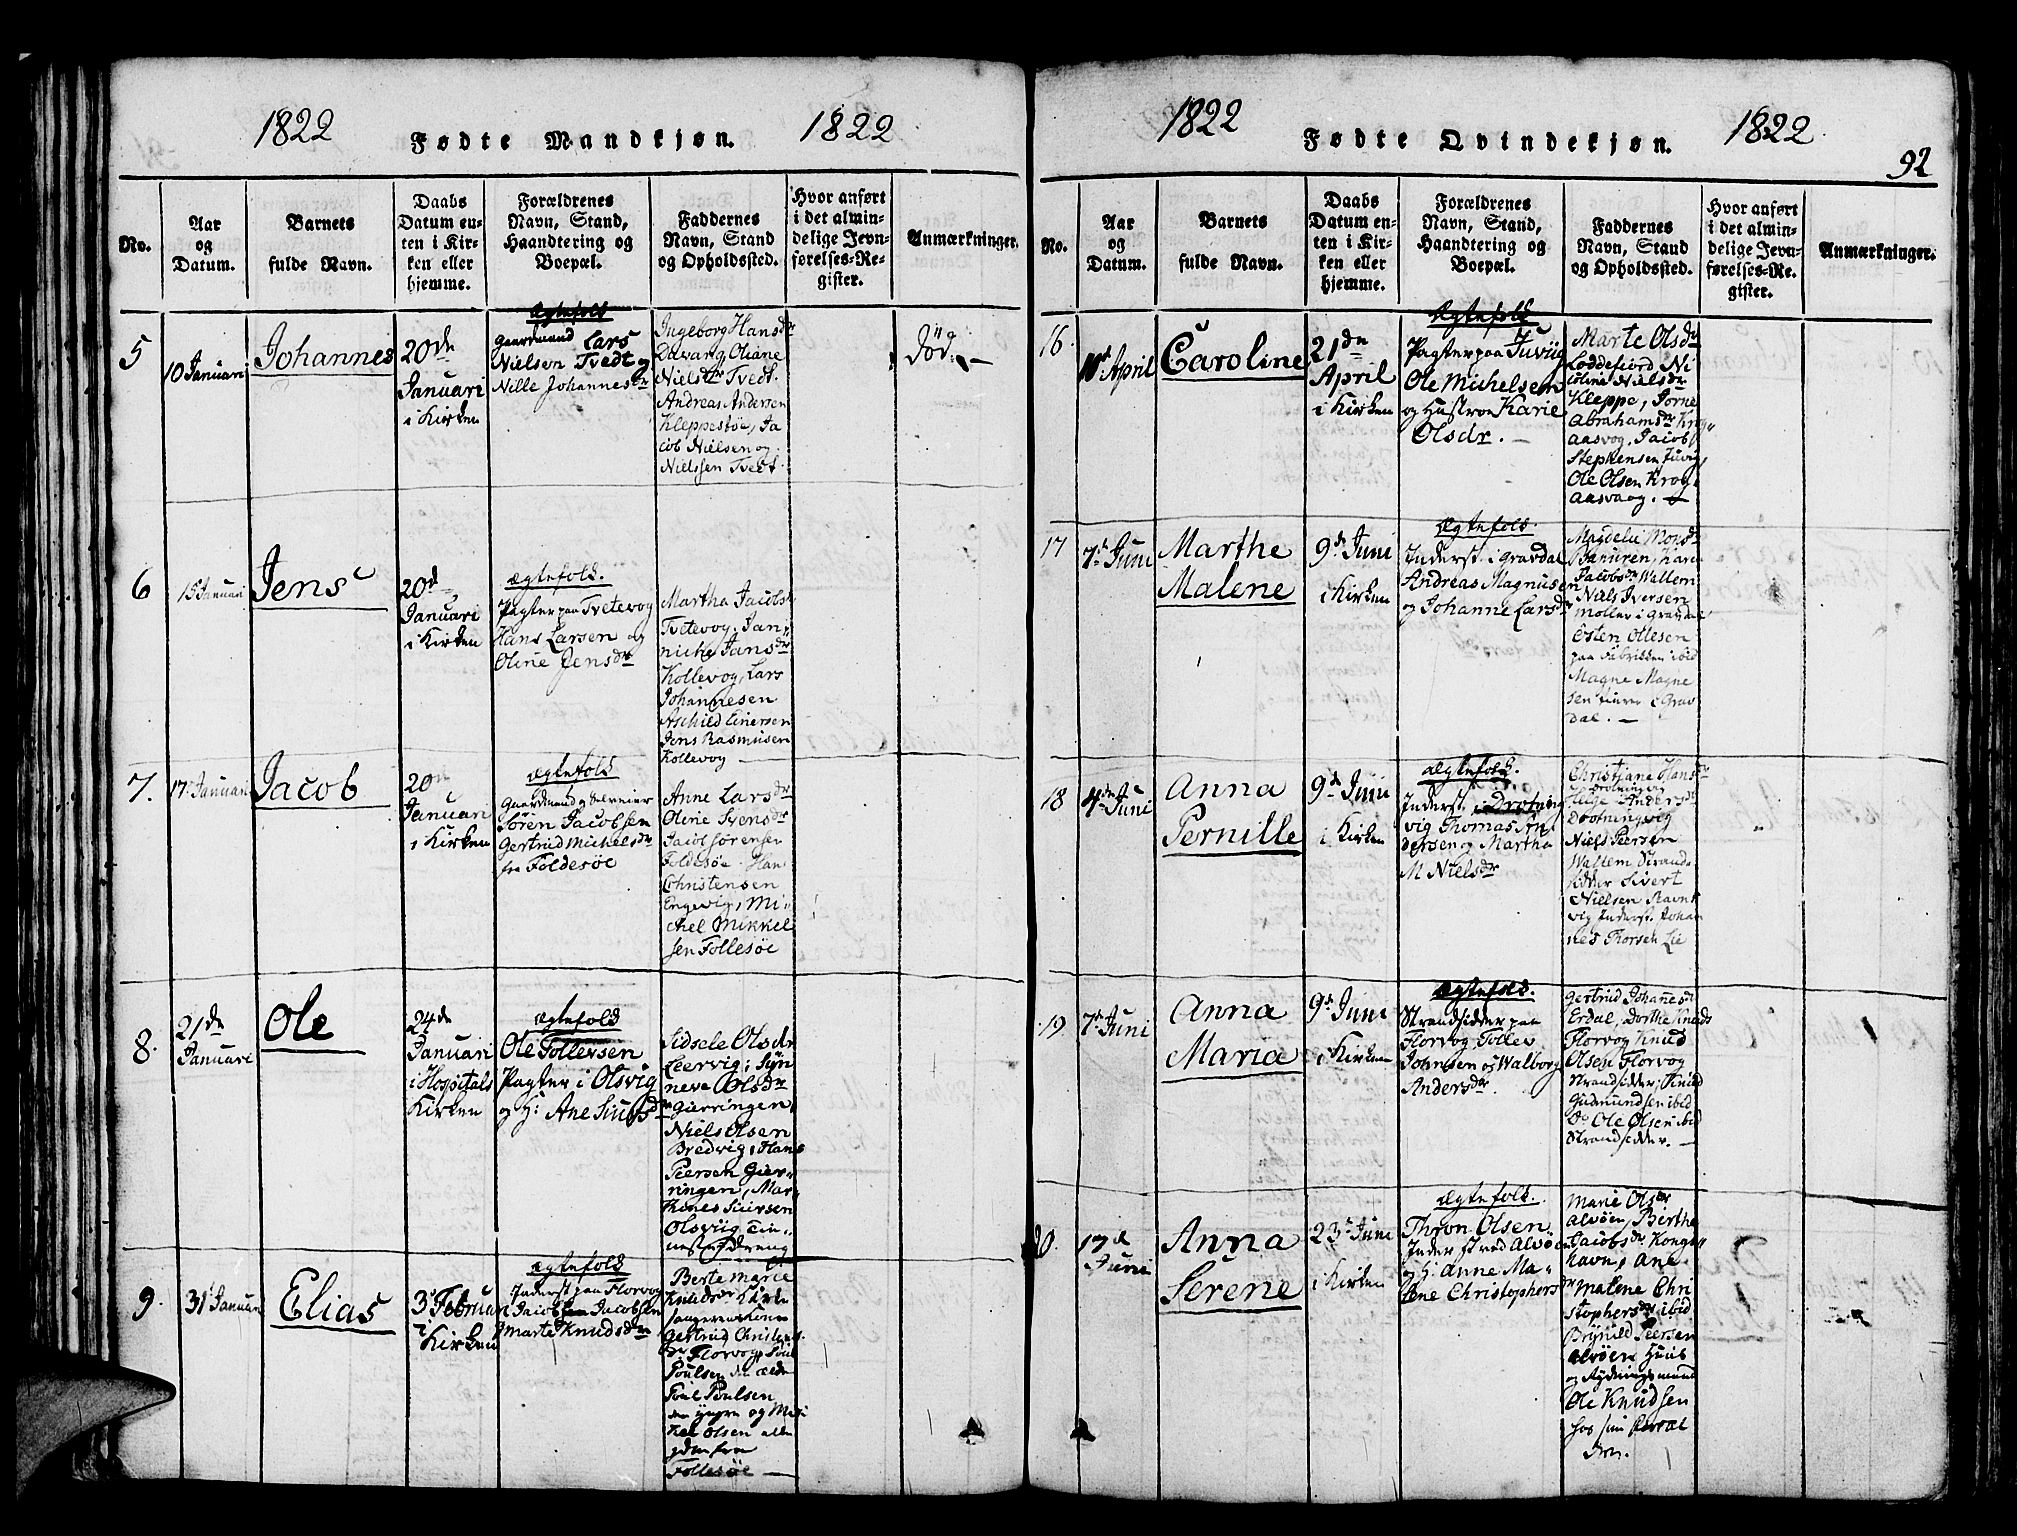 1822
Fødte Mandkjøn.
1822
No.
Aar
og
Datum.
Barnets
fulde Navn.
Daabs
Datum en-
ten i Kir-
ken eller
hjemme.
Forældrenes
Navn, Stand,
Haandtering og
Boepæl.
Faddernes
Navn, Stand
og Opholdssted.
Hvor anført
i det almin-
delige Jevn-
førelses-Re-
gister.
Anmærkninger.
5
10 Januari
Johannes
20de
Januari
i Kirken
Ægtefolk
Gaardmand Lars
Nielsen Tvedt og
Nille Johannesdr
Ingeborg Hansdr
Davang, Oliane
Nielsdr Tvedt.
Andreas Andersen
Kleppestøe, Ja
cob Nielsen og
Nielssen Tvedt.
Död. —
6
15 Januari
Jens
20d
Januari
i Kirken
Ægtefolk.
Pagter paa Tvetevog
Hans Larsen og
Oline Jensdr
Martha Jacobs
Tvetevog, Jan-
niche Jansdr
Kollevog, Lars
Johannesen
Aschild Einersen
Jens Rasmusen
Kollevog
7.
17 Januari
Jacob
20
Januari
i Kirken
Ægtefolk
Gaardmand og Selveier
Sören Jacobsen
Gertrud Michelsdr
fra Foldesöe
Anne Larsdr
Oline Svensdr
Jacob Sörensen
Foldesöe. Han
Christensen
Engevig, Mi-
chel Mikkel
sen Follesöe
8.
21de
Januari
Ole
24de
Januari
i Hospitals
Kirken
Ægtefolk
Ole Tollevsen
Pagter i Olsvig
og H: Ane Siursdr
Sidsele Olsdr
Leervig; Syn
neve Olsdr
Gierringen,
Niels Olsen
Bredvig; Hans
Peersen Gier-
ringen, Mar-
kones Siursen
Olsviig
9.
31 Januari
Elias
3 Februari
i
Kirken
Ægtefolk
Inderst paa Florvog
Jacob Jacobsen
Marte Knudsdr
Berte Marie
Knudsdr Kirke
sangerens kone
Gertrud Christens
dr Florvog,
Poulsen den ælde
Poul Poulsen
den yngre og Mi
kel Olsen alle
fra
Follesöe —
1822
Fødte Qvindekjøn.
1822.
92
No.
Aar
og
Datum.
Barnets
fulde Navn.
Daabs
Datum en-
ten i Kir-
ken eller
hjemme.
Forældrenes
Navn, Stand,
Haandtering og
Boepæl.
Faddernes
Navn, Stand
og Opholdssted.
Hvor anført
i det almin-
delige Jevn-
førelses-Re-
gister.
Anmærkninger.
16.
April
Caroline
21de
April
i Kirken
Ægtefolk
Pagter paa Juviig
Ole Michelsen
og Hustroe Karie
Olsdr. —
Marte Olsdr
Loddefiord Ni
coline Nielsdr
Kleppe, Jorne
Abrahamsdr Krog
aasvog, Jacob
Stephensen Juvig,
Ole Olsen Krog
aasvaag.
17
7de Juni
Marthe
Malene
9de Juni
i Kirken
Ægtefolk.
Inderst. i Gravdal
Andreas Magnusen
og Johanne Larsdr
Magdeli Monsdr
Kari
Jacobsdr Wallem
Niels Iversen
Møller i Gravdal
Østen Ollesen
paa Fabrikken ibid
Magne Magne
sen i Grav
dal. —
18
4de Juni
Anna
Pernille
9de Juni
i Kirken
Ægtefolk.
Inderst. i Drotning
vig Thomas An
dersen og Martha
M Nielsdr
Christiane Hansdr
Drotningvig
Andersdr
Drotningvig
Niels Peersen
Wallem Strand-
sidder Sivert
Nielsen Ravn
vig Inderst. Johan
nes Thorsen Lie
19
7de Juni
Anna
Maria
9de Juni
i Kirken
Ægtefolk.
Strandsidder paa
Florvog Tollev
Johnsen og Walborg
Andersdr.
Gertrud Johannesd
Erdal, Dorthe Knuds
Florvog Knud
Olsen Florvog
Strandsidder, Knud
Gudmundsen ibid
Do Ole Olsen ibid
Strandsidder. —
20.
17d
Juni
Anna
Serene
23 Juni
i Kirken
Ægtefolk.
Olsen
Inderst ved Alvøen
og H: Anne Ma-
lene Christophers
dr
Marie Olsdr
Alvøen, Berthe
Jacobsdr Konge
havn, Ane
Malene Chri
stophersdr ibid
Brynild Peersen
Alvøen Huus
og Rydningsmand
Ole Knudsen